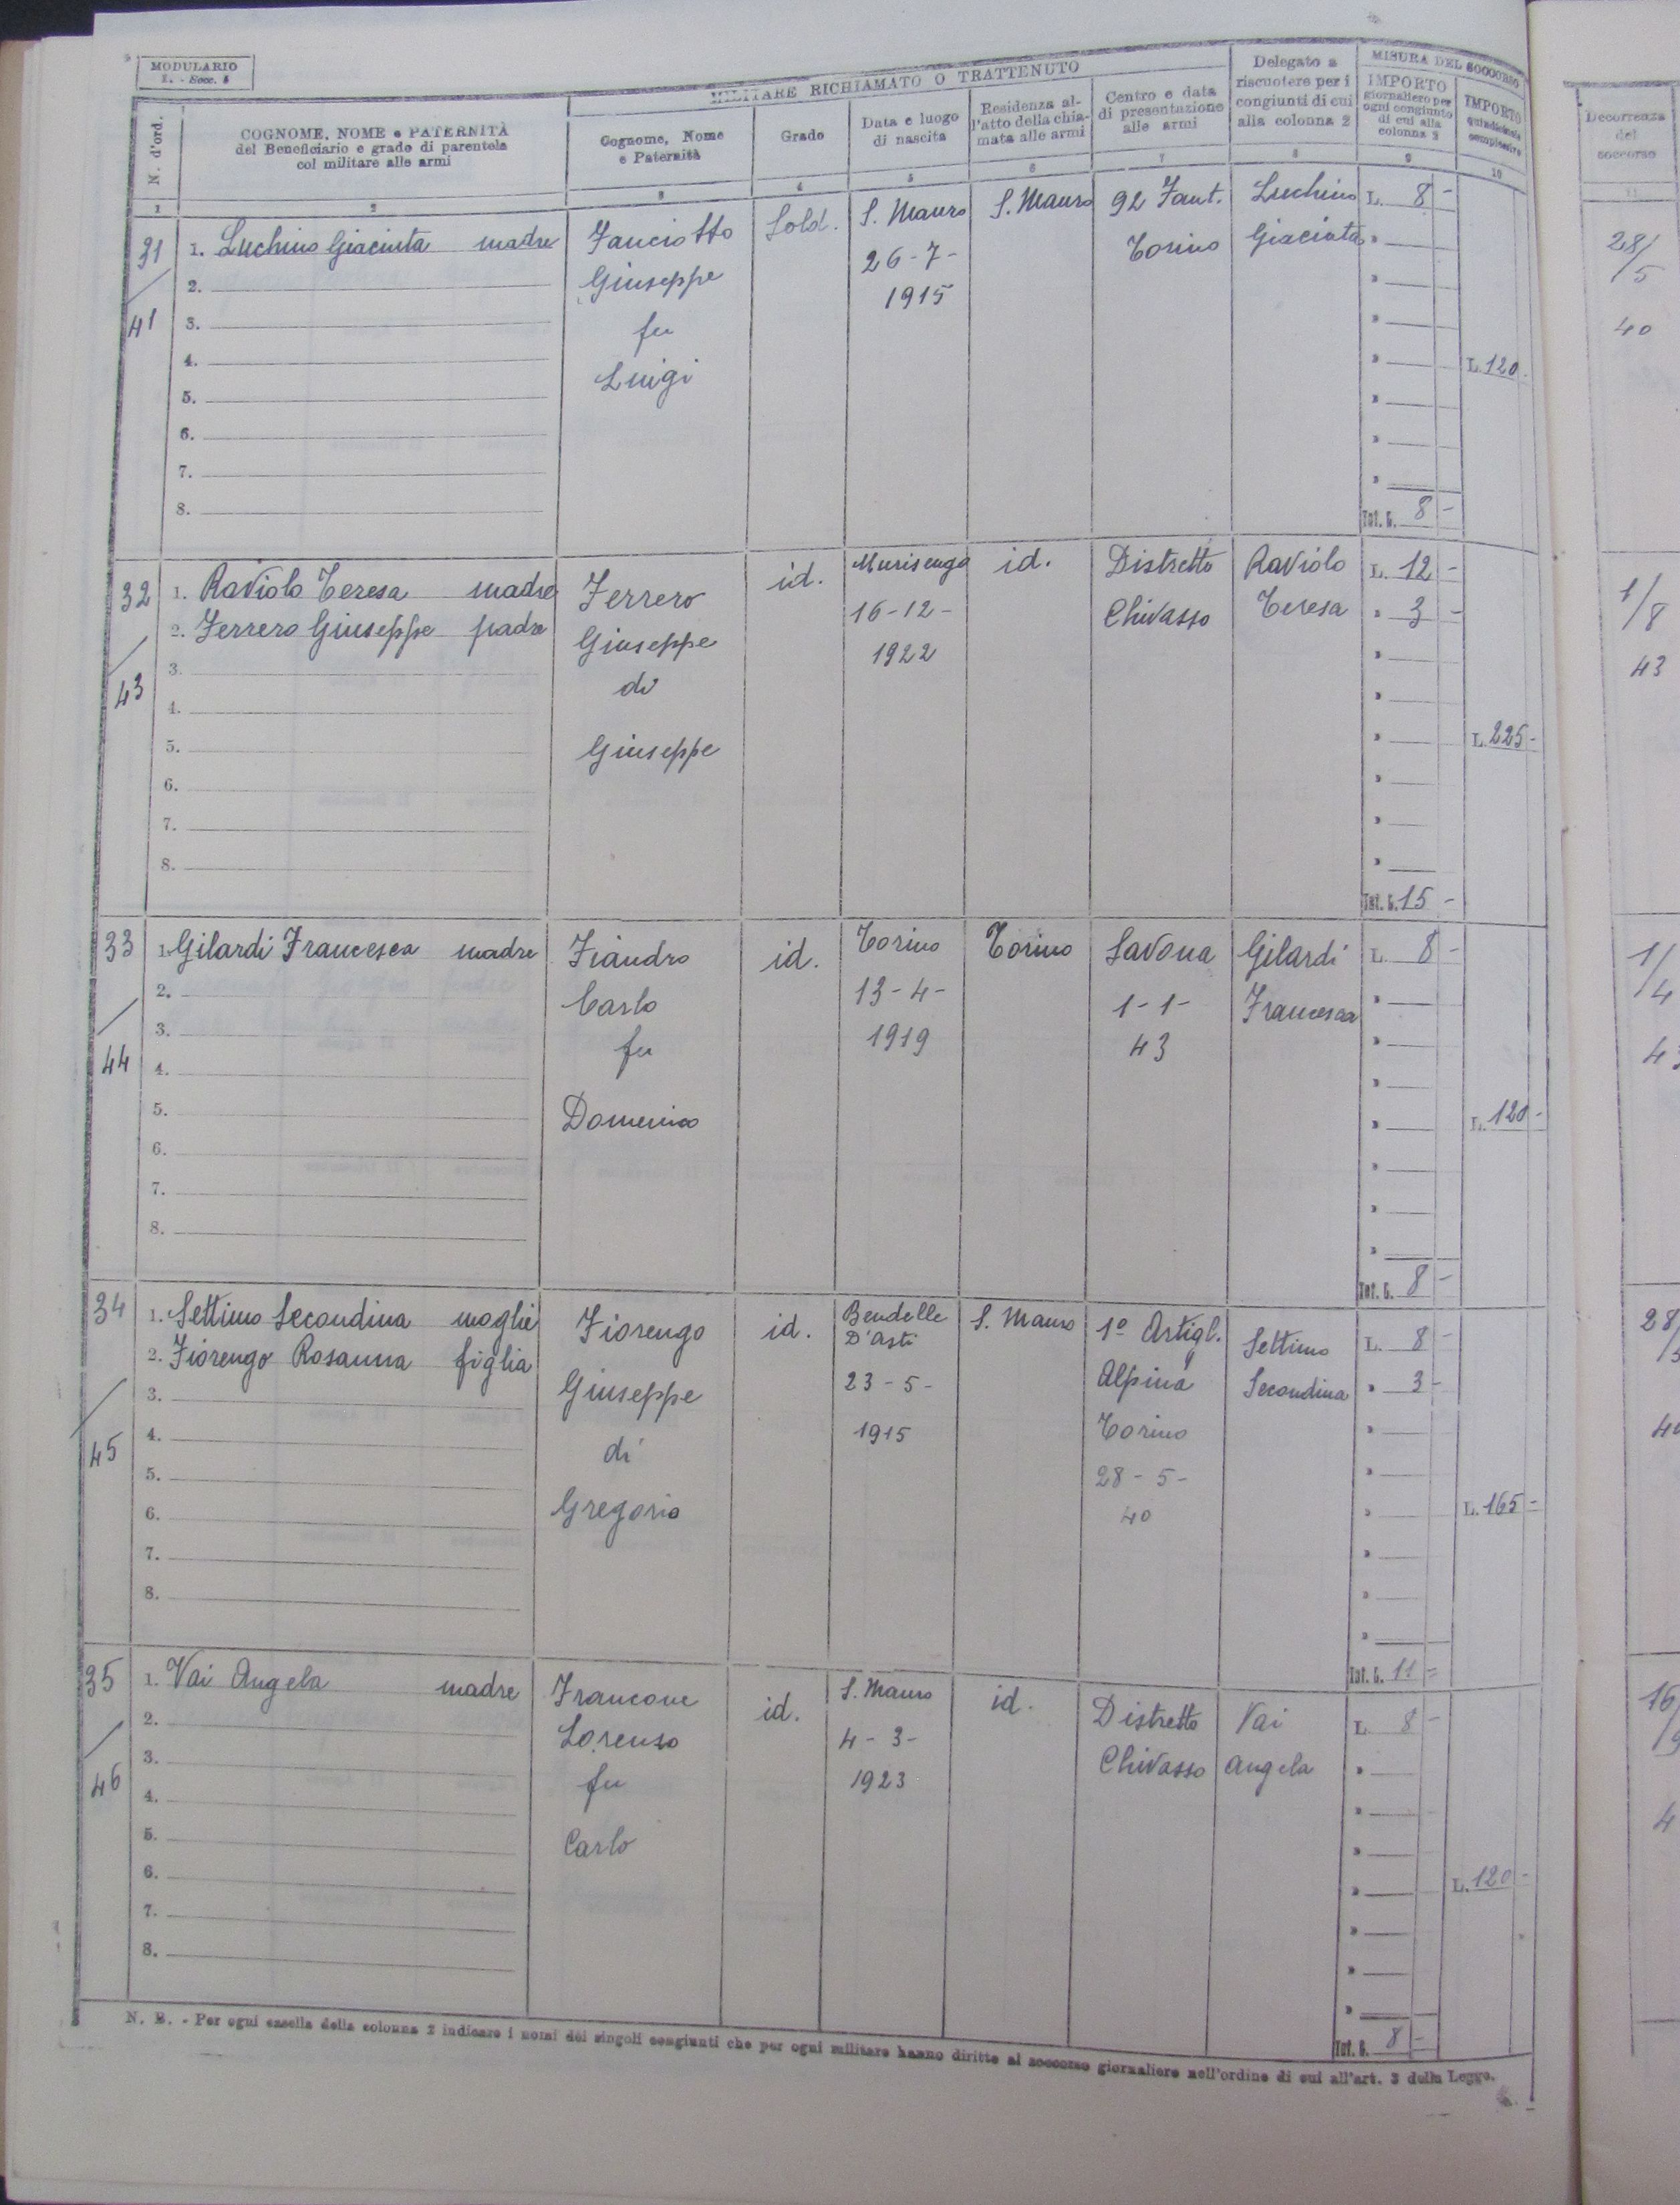 MODULARIO
I. - Socc. 5
N. d'ord.
COGNOME, NOME e PATERNITÀ
del Beneficiario e grado di parentela
col militare alle armi
MILITARE RICHIAMATO O TRATTENUTO
Cognome, Nome
e Paternità
Grado
Data e luogo
di nascita
Residenza al-
l'atto della chia-
mata alle armi
Centro e data
di presentazione
alle armi
Delegato a
riscuotere per i
congiunti di cui
alla colonna 2
MISURA DEL SOCCORSO
IMPORTO
giornaliero per
ogni congiunto
di cui alla
colonna 2
IMPORTO
quindicinale
complessivo
Decorrenza
del
soccorso
1 2 3 4 5 6 7 8 9 10 11
31 / 41
1. Luchino Giacinta madre
2.
3.
4.
5.
6.
7.
8.
Fanciotto
Giuseppe
fu
Luigi
Sold.
S. Mauro
26-7-
1915
S. Mauro
92 Fant.
Torino
Luchino
Giacinta
L. 8 -
Tot. G. 8 -
L. 120 -
28/5
40
32 / 43
1. Raviolo Teresa madre
2. Ferrero Giuseppe padre
3.
4.
5.
6.
7.
8.
Ferrero
Giuseppe
di
Giuseppe
id.
Murisengo
16-12-
1922
id.
Distretto
Chivasso
Raviolo
Teresa
L. 12 -
" 3 -
Tot. G. 15 -
L. 225 -
1/8
43
33 / 44
1. Gilardi Francesca madre
2.
3.
4.
5.
6.
7.
8.
Fiandro
Carlo
fu
Domenico
id.
Torino
13-4-
1919
Torino
Savona
1-1-
43
Gilardi
Francesca
L. 8 -
Tot. G. 8 -
L. 120 -
1/4
34 / 45
1. Settimo Secondina moglie
2. Fiorengo Rosanna figlia
3.
4.
5.
6.
7.
8.
Fiorengo
Giuseppe
di
Gregorio
id.
D'Asti
23-5-
1915
S. Mauro
1º Artigl.
Alpina
Torino
28-5-
40
Settimo
Secondina
L. 8 -
" 3 -
Tot. G. 11 =
L. 165 =
28/
35 / 46
1. Vai Angela madre
2.
3.
4.
5.
6.
7.
8.
Francone
Lorenzo
fu
Carlo
id.
S. Mauro
4-3-
1923
id.
Distretto
Chivasso
Vai
Angela
L. 8 -
Tot. G. 8 -
L. 120 -
16/
4
N. B. - Per ogni casella della colonna 2 indicare i nomi dei singoli congiunti che per ogni militare hanno diritto al soccorso giornaliero nell'ordine di cui all'art. 3 della Legge.